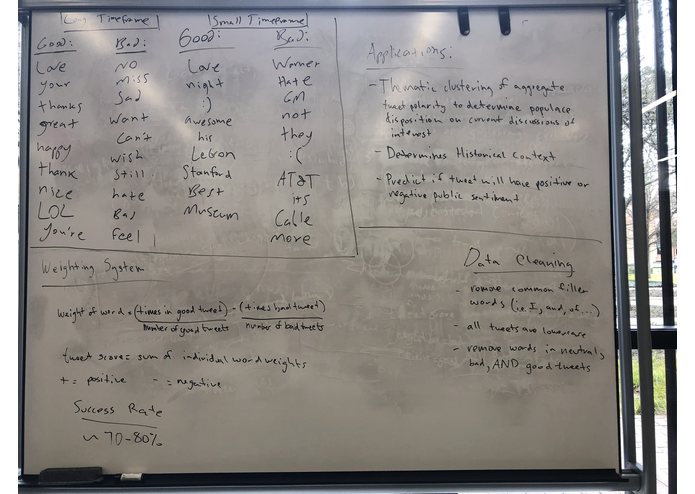 Long Timeframe
Good: Bad:
Love NO
your Miss
thanks Sad
great Want
happy Can't
thank wish
nice Still
LOL hate
You're Bad
Feel
Small Timeframe
Good: Bad:
Love Warner
night Hate
:) GM
awesome not
his they
LeBron :(
Stanford AT&T
Best its
Museum Cable
More
Applications:
- Thematic clustering of aggregate
tweet polarity to determine populace
disposition on current discussions of
interest
- Determines Historical context
- Predict if tweet will have positive or
negative public sentiment
Weighting System
weight of word = (times in good tweet) - (times bad tweet)
number of good tweets number of bad tweets
tweet score = sum of individual word weights
+ = positive - = negative
Success Rate
~ 70-80%
Data Cleaning
- remove common filler
words (i.e. I, and, of...)
- all tweets are lowercase
- remove words in neutral,
bad, AND good tweets